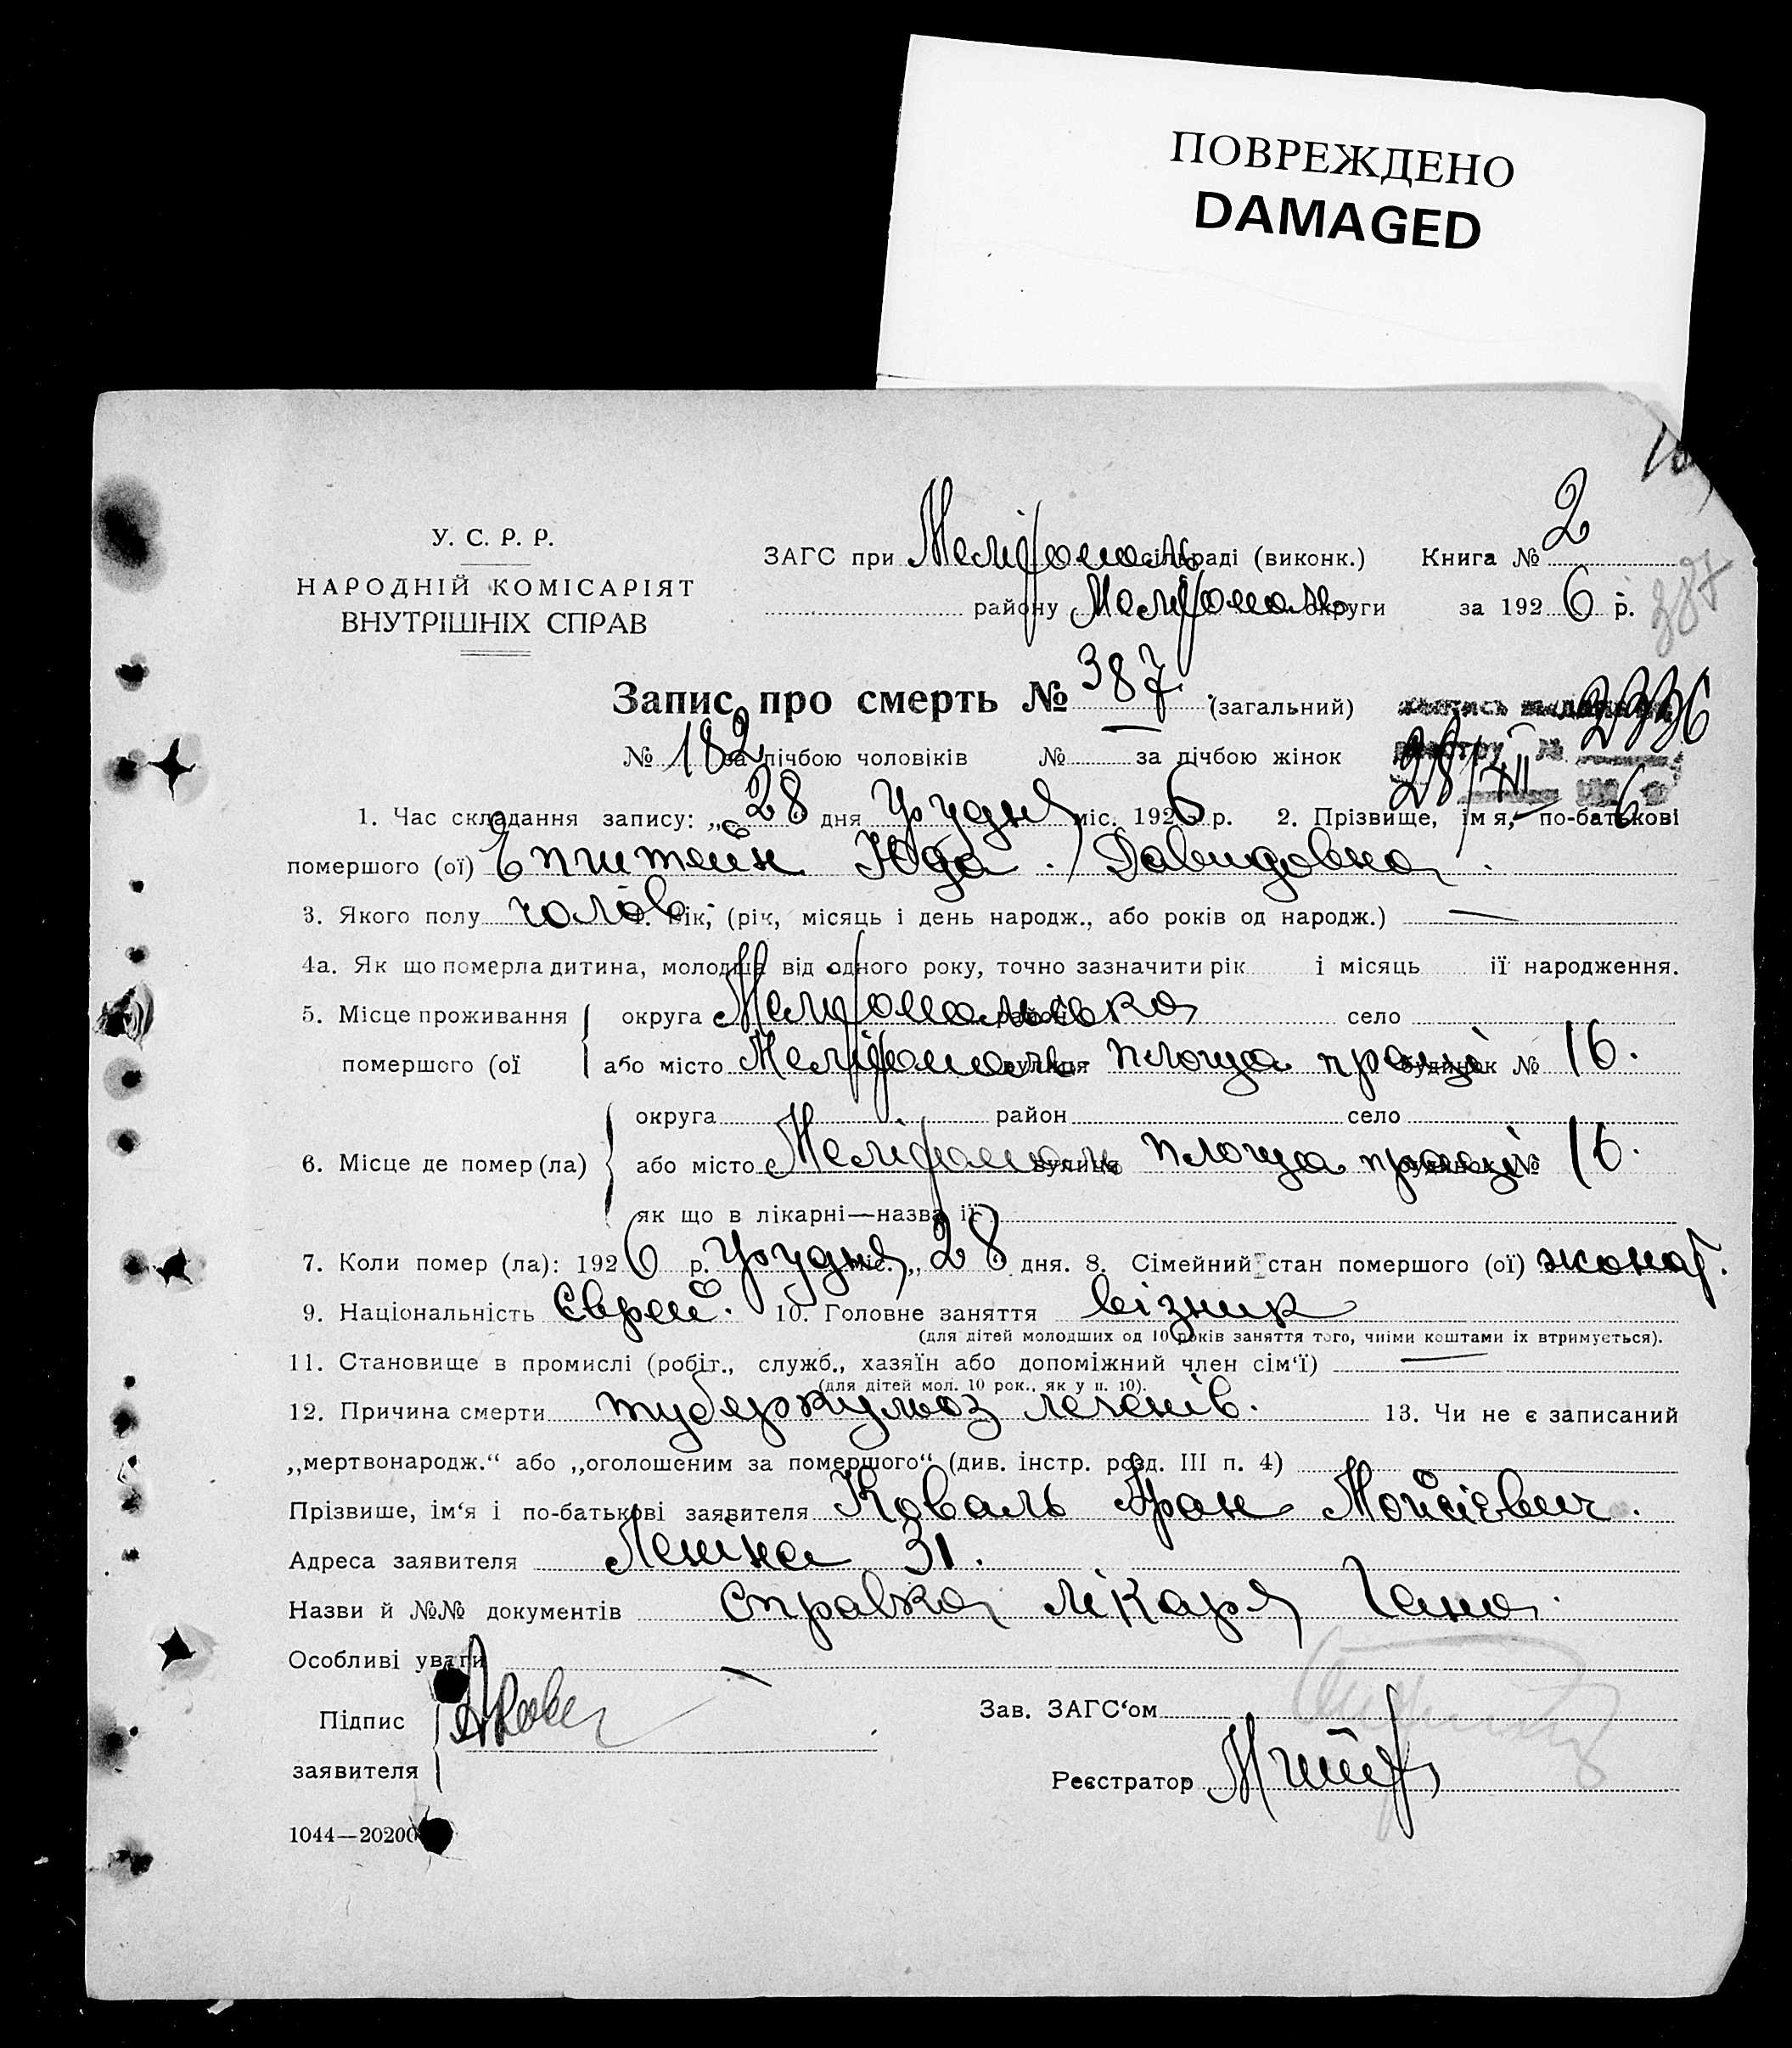 ПОВРЕЖДЕНО
DAMAGED
У. С. Р. Р.
НАРОДНІЙ КОМІСАРІЯТ
ВНУТРІШНІХ СПРАВ
ЗАГС при Меліtополь сільраді (виконк.) Книга № 2
району Меліtополь округи за 1926 р.
387
Запис про смерть № 387 (загальний)
2336
№ 182 за лічбою чоловіків № за лічбою жінок
28/XII 6
1. Час складання запису: „28 дня Грудня міс. 1926 р. 2. Прізвище, ім'я, по-батькові
помершого (ої) Епштейн Юда Давидовна
3. Якого полу чолов. 4. Вік, (рік, місяць і день народж., або років од народж.) —
4а. Як що померла дитина, молодша від одного року, точно зазначити рік і місяць ії народження.
5. Місце проживання округа Меліtопольська район село
помершого (ої або місто Меліtополь вулиця площа праці будинок № 16.
округа район село
6. Місце де помер (ла) або місто Меліtополь вулиця площа праці будинок № 16.
як що в лікарні—назва ії
7. Коли помер (ла): 1926 р. Грудня міс. „28 дня. 8. Сімейний стан помершого (ої) жонат.
9. Національність Єврей. 10. Головне заняття візник
(для дітей молодших од 10 років заняття того, чиїми коштами їх втримується).
11. Становище в промислі (робіт., служб., хазяїн або допоміжний член сім'ї) —
(для дітей мол. 10 рок., як у п. 10).
12. Причина смерти туберкульоз легенів. 13. Чи не є записаний
„мертвонародж.“ або „оголошеним за помершого“ (див. інстр. розд. III п. 4)
Прізвище, ім'я і по-батькові заявителя Коваль Арон Мойсієвич.
Адреса заявителя Леніна 31.
Назви й №№ документів справка лікаря Гана.
Особливі уваги —
Підпис
заявителя
Зав. ЗАГС'ом
Реєстратор
1044—20200